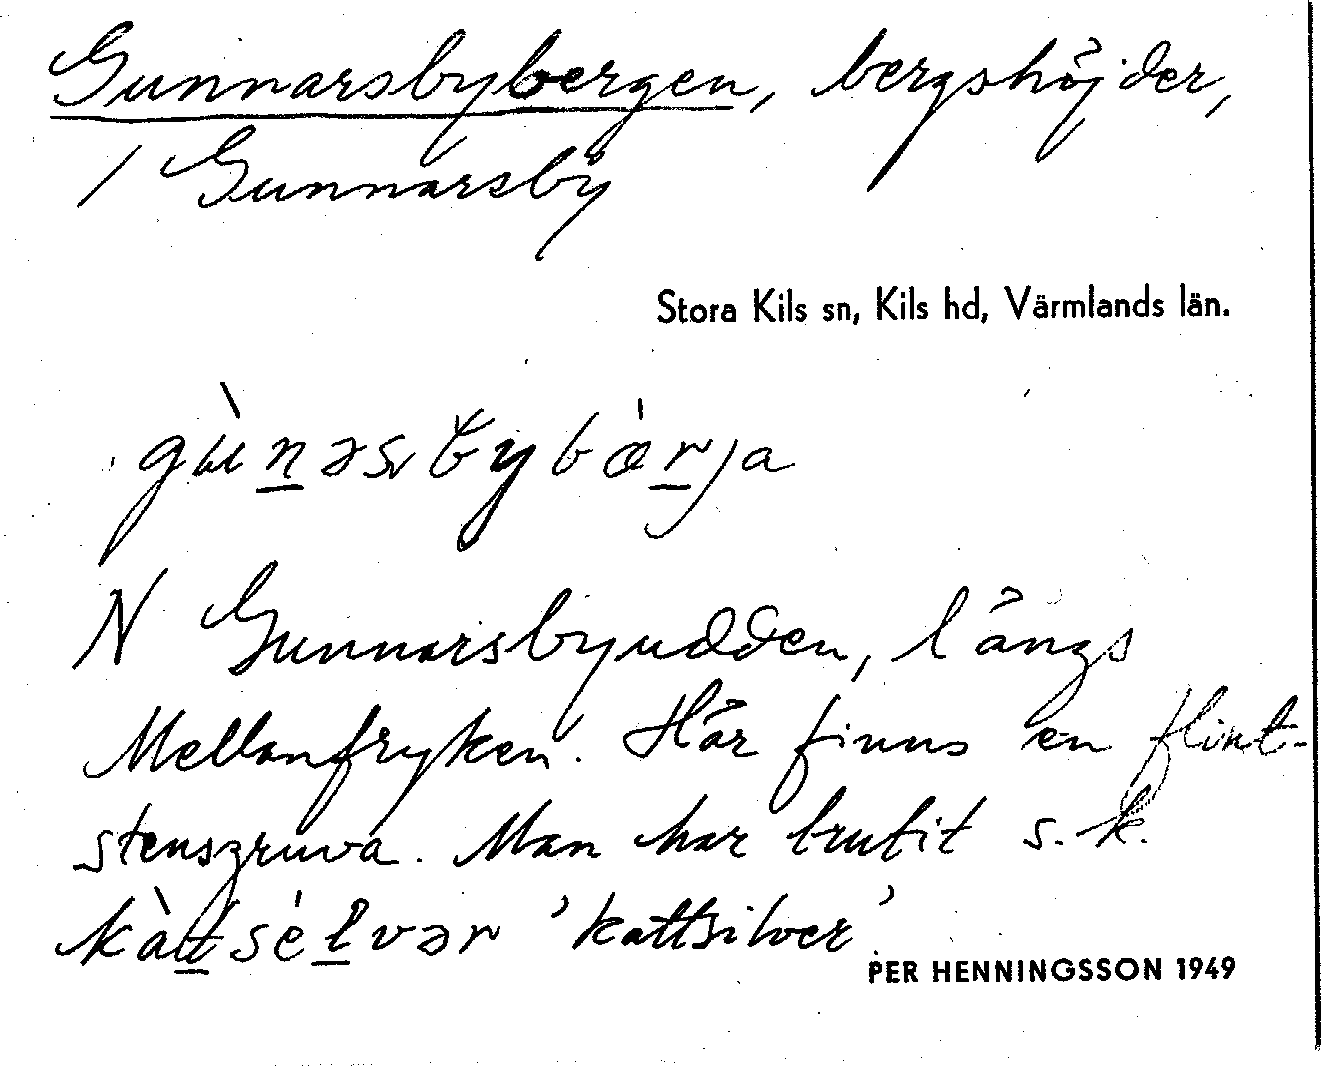 Gunnarsbybergen, bergshöjder,
/ Gunnarsby
Stora Kils sn, Kils hd, Värmlands län.
gùn̲əsbybǽr̲ja
N Gunnarsbyudden, längs
Mellanfryken. Här finns en flint-
stensgruva. Man har brutit s.k.
kàt̲sél̲vər 'kattsilver'.
PER HENNINGSSON 1949